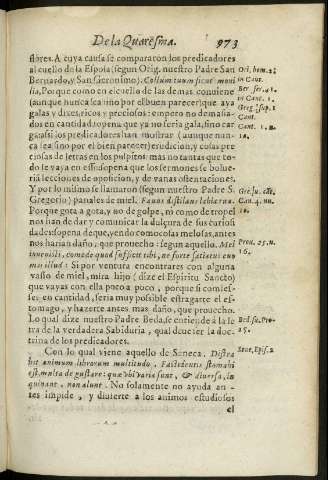 De la Quaresma. 973
stores. A cuya causa se compararon los predicadores
al cuello de la Esposa (segun Orig. nuestro Padre San
Bernardo, y San Geronimo). Collum tuum sicut moni
lia, Porque como en el cuello de las damas conviene
(aunque nunca sea sino por el buen parecer) que aya
galas y dixes, ricos y preciosos: empero no demasia-
dos en cantidad, porque que ya no seria gala, sino car
ga: assi los predicadores han mostrar (aunque nun-
ca sea sino por el bien parecer) erudicion, y cosas pre
ciosas de letras en los pulpitos: mas no tantas que to-
do se vaya en esso: opena que los sermones se bolue-
rià lecciones de oposicion, y de vanas ostentaciones.
Y por lo mismo se llamaron (segun nuestro Padre S.
Gregorio) panales de miel. Fauus distilans labia tua.
Porque gota a gota, y no de golpe, ni como de tropel
nos han de dar y comunicar la dulçura de sus curiosi
dades: opena de que, yendo como cosas melosas, antes
nos harian daño, que prouecho: segun aquello. Mel
inuenisti, comede quod sufficit tibi, ne forte satietus euo
mas illud: Si por ventura encontrares con algun
vaso de miel, mira hijo (dize el Espiritu Sancto)
que vayas con ella poco a poco, porque si comies-
ses en cantidad, seria muy possible estragarte el es-
tomago, y hazerte antes mas daño, que prouecho.
Lo qual dize nuestro Padre Beda, se entiende à la le
tra de la verdadera Sabiduria, qual deue ser la doc-
trina de los predicadores.
Con lo qual viene aquello de Seneca. Distra
hit animum librorum multitudo, Fastidientis stomahi
est, multa de gustare: quæ vbi varia sunt, & diuersa, in
quinant, non alunt. No solamente no ayuda an-
tes impide, y diuierte a los animos estudiosos
el
Ori. hom. 2.
in Cant.
Ber ser. 41.
in Cant. 1.
Greg. sup. 1
Cant.
Cant. 1. n.
10.
Gre. su. cit.
Can. 4. nu.
10.
Prou. 25. n.
16.
Bed. su. Pro.
25.
Sene. Epis. 2